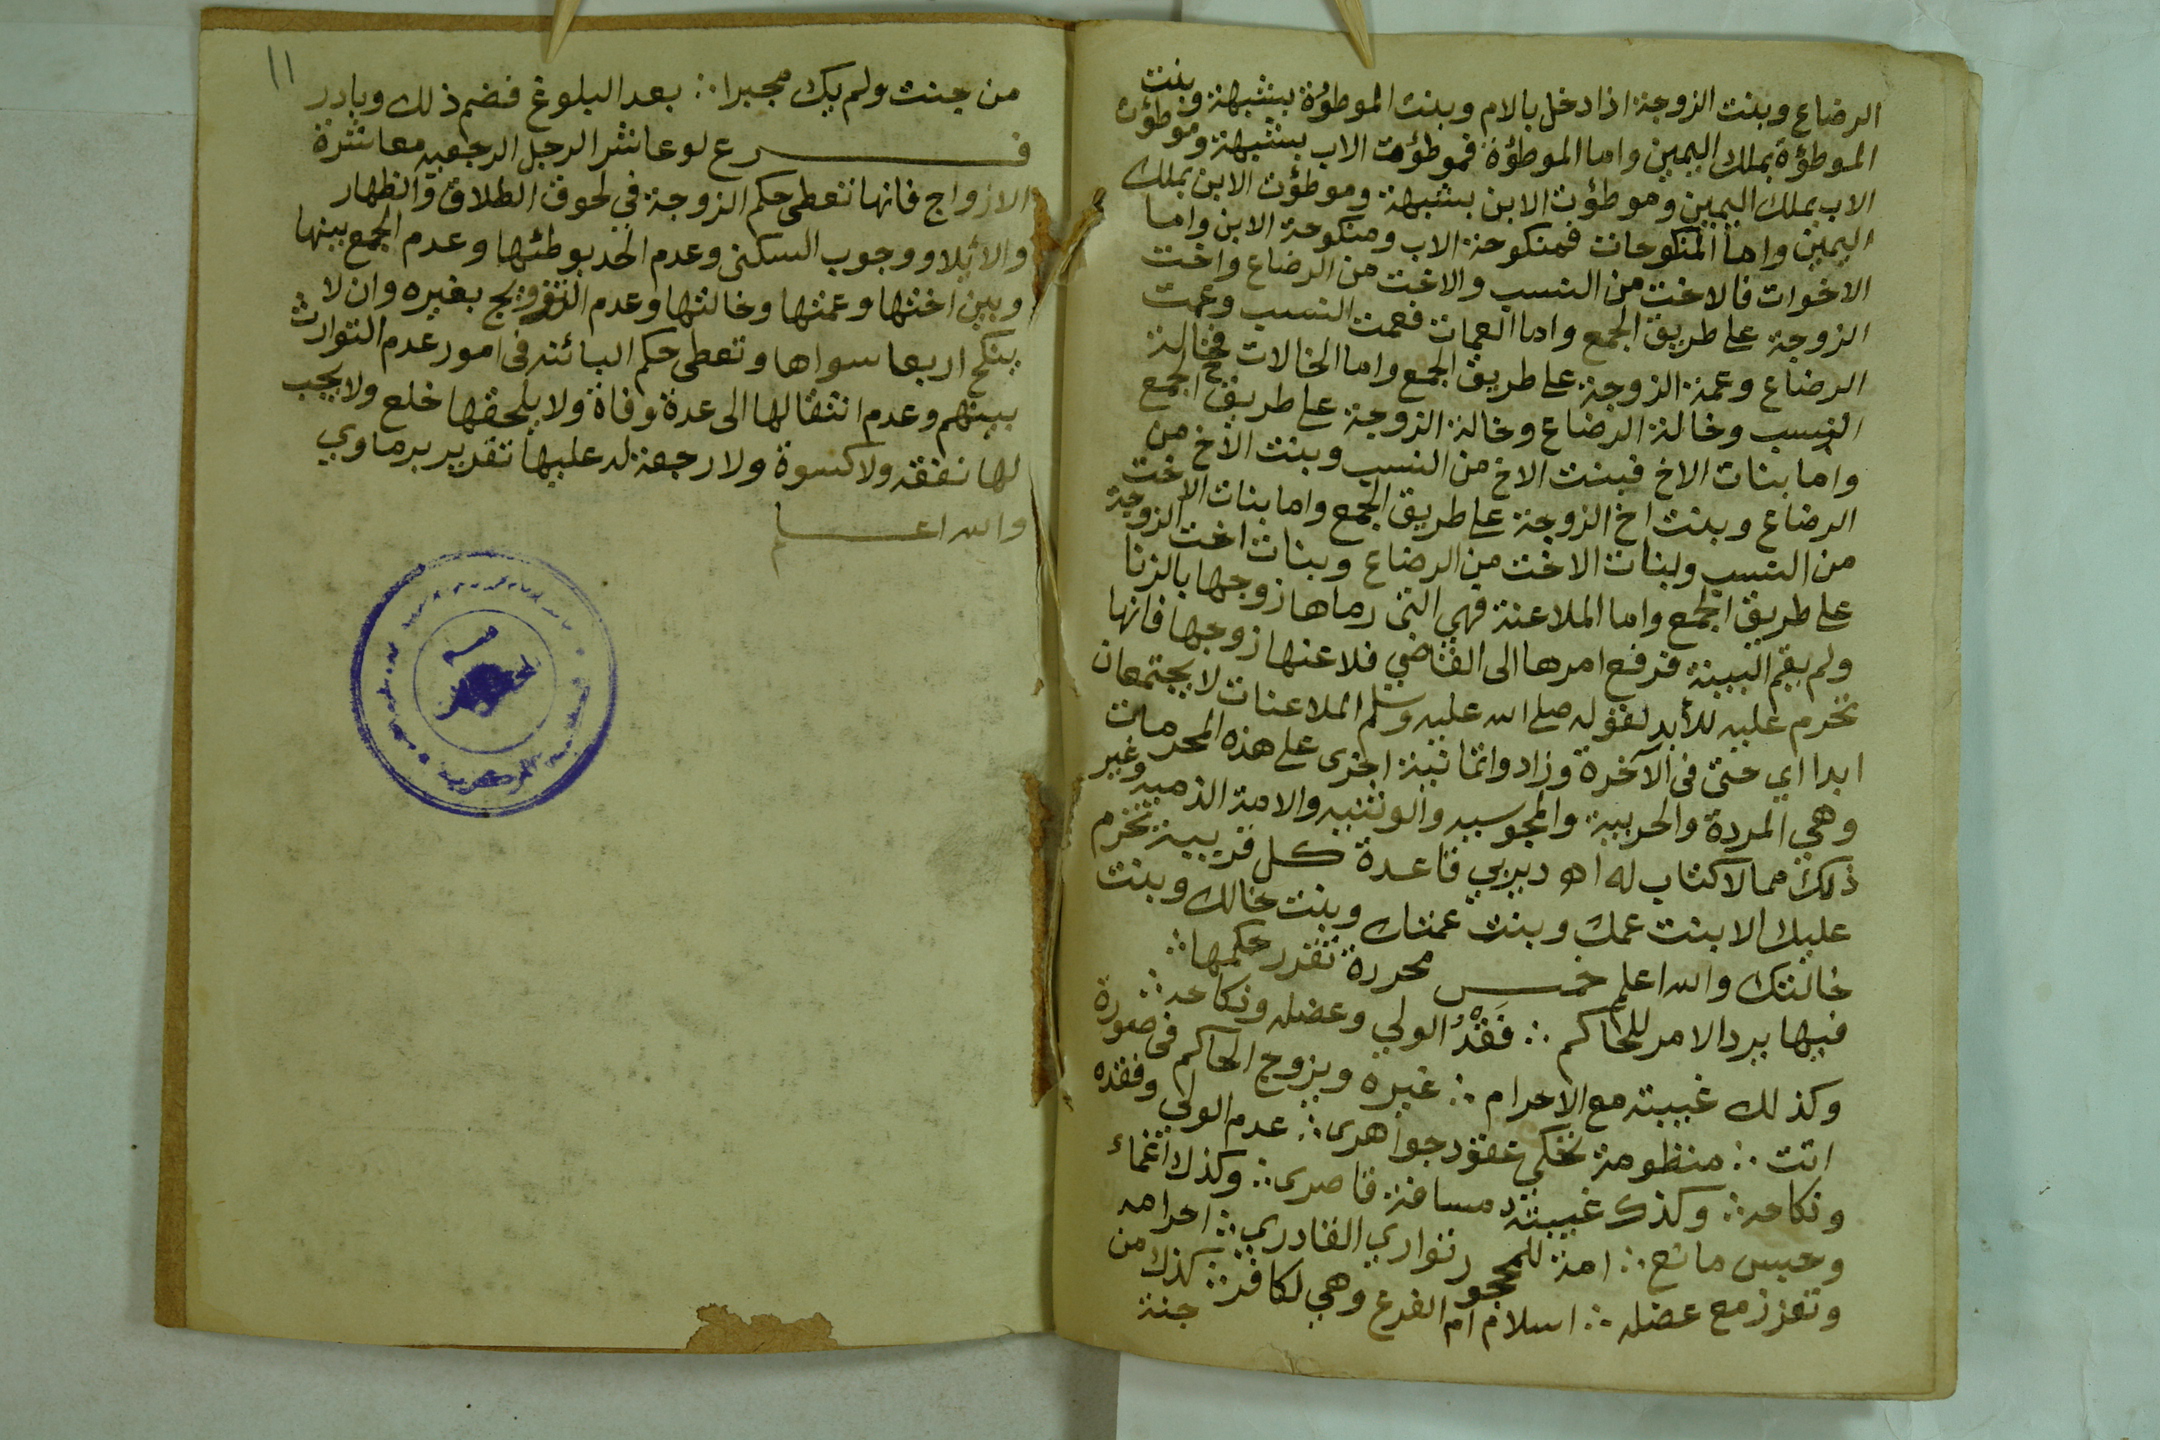 الرضاع وبنت الزوجة اذا دخل بالام وبنت الموطؤة بشبهة وبنت
الموطؤة بملك اليمين واما الموطؤة فموطؤت الاب بشبهة وموطؤت
الاب بملك اليمين وموطؤت الابن بشبهة وموطؤت الابن بملك
اليمين واما المنكوحات فمنكوحة الاب ومنكوحة الابن واما
الاخوات فالاخت من النسب والاخت من الرضاع واخت
الزوجة على طريق الجمع واما العمات فعمت النسب وعمت
الرضاع وعمة الزوجة على طريق الجمع واما الخالات فخالة
النسب وخالة الرضاع وخالة الزوجة على طريق الجمع
واما بنات الاخ فبنت الاخ من النسب وبنت الاخ من
الرضاع وبنت اخ الزوجة على طريق الجمع واما بنات الاخت
من النسب وبنات الاخت من الرضاع وبنات اخت الزوجة
على طريق الجمع واما الملاعنة فهي التى رماها زوجها بالزنا
ولم يقم البينة فرفع امرها الى القاضي فلاعنها زوجها فانها
تحرم عليه للأبد لقوله صلى الله عليه وسلم الملاعنات لا يجتمعان
ابدا اي حتى فى الآخرة وزادوا ثمانية اخرى على هذه المحرمات
وهي المردة والحربية والمجوسيه والوثنيه والامة الذميه وغير
ذلك مما لا كتاب له اهو ديربي قاعدة كل قريبة تحرم
عليك الا بنت عمك وبنت عمتك وبنت خالك وبنت
خالتك والله اعلم خمس محررة تقرر حكمها ∴
فيها يرد الامر للحاكم ∴ فَقْدُ الولي وعضله ونكاحه ∴
وكذلك غيبته مع الاحرام ∴ غيره ويزوج الحاكم فى صورة
اتت ∴ منظومة تحكي عقود جواهرى ∴ عدم الولي وفقده
ونكاحه ∴ وكذك غيبته مسافة قاصرى ∴ وكذك اغماء
وحبس مانع ∴ امة للمحجور تواري القادري ∴ احرامه
وتعزز مع عضله ∴ اسلام ام الفرع وهي لكافر ∴ كذك من
جنة
١١
من جنت ولم يك مجبرا ∴ بعد البلوغ فضم ذلك وبادر
فرع لو عاشر الرجل الرجعيه معاشرة
الازواج فانها تعطى حكم الزوجة في لحوق الطلاق والظهار
والائلا ووجوب السكنى وعدم الحد بوطئها وعدم الجمع بينها
وبين اختها وعمتها وخالتها وعدم التزويج بغيره وان لا
ينكح اربعا سواها وتعطى حكم البائنه فى امور عدم التوارث
بينهم وعدم انتقالها الى عدة وفاة ولا يلحقها خلع ولا يجب
لها نفقه ولا كسوة ولا رجعة له عليها تقرير برماوي
والله اعلم